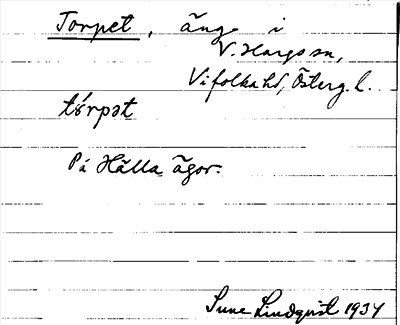 Torpet, äng i
V. Hargs sn,
Vifolka hd, Österg. l.
tɷ́rpət
På Hälla ägor.
Sune Lindqvist 1934